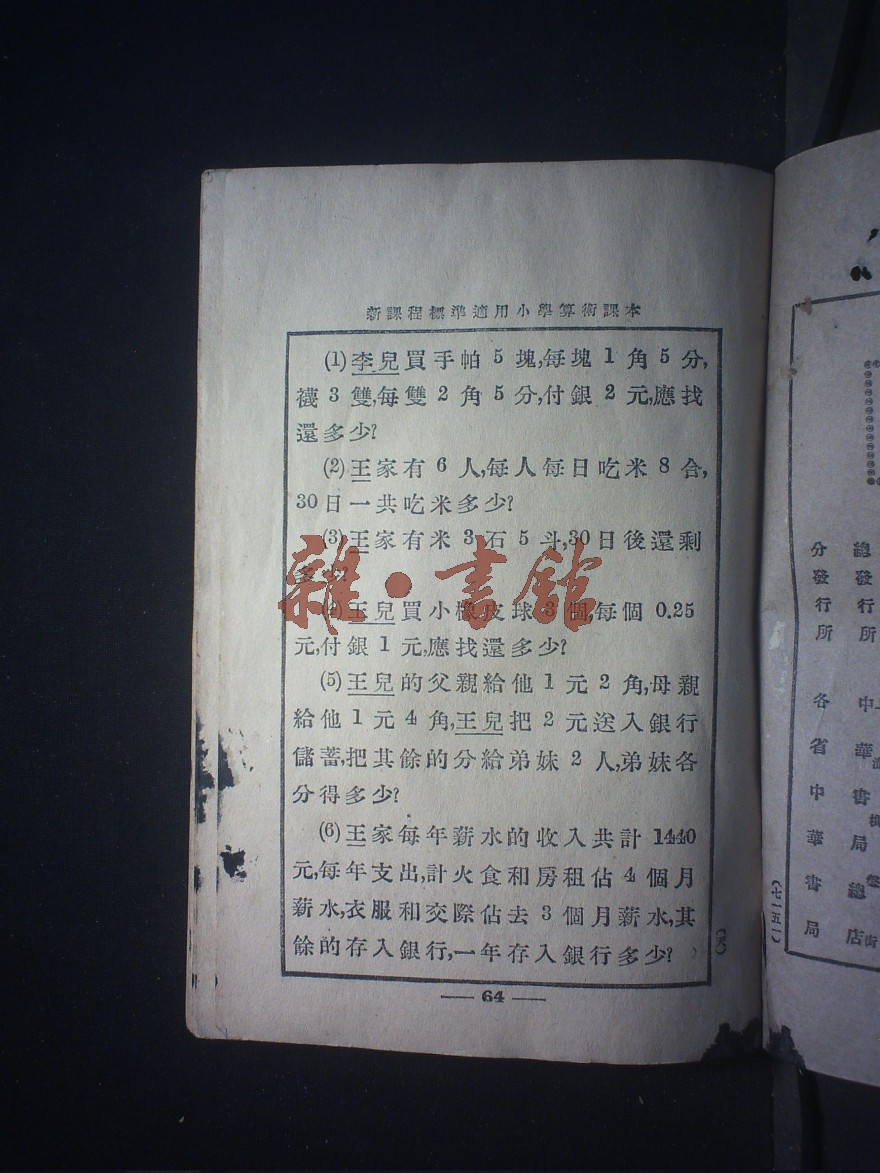 新課程標準適用小學算術課本
(1)李兒買手帕5塊,每塊1角5分,
襪3雙,每雙2角5分,付銀2元,應找
還多少?
(2)王家有6人,每人每日吃米8合,
30日一共吃米多少?
(3)王家有米3石5斗,30日後還剩
多少?
(4)王兒買小橡皮球3個,每個0.25
元,付銀1元,應找還多少?
(5)王兒的父親給他1元2角,母親
給他1元4角,王兒把2元送入銀行
儲蓄,把其餘的分給弟妹2人,弟妹各
分得多少?
(6)王家每年薪水的收入共計1440
元,每年支出,計火食和房租佔4個月
薪水,衣服和交際佔去3個月薪水,其
餘的存入銀行,一年存入銀行多少?
— 64 —
雜·書館
總發行所
中華書局總店
分發行所
各省中華書局
(七一五一)